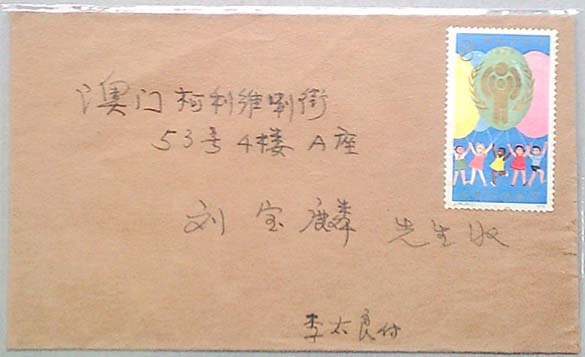 澳门柯利维喇街
53号4楼A座
刘宝麟 先生收
李太良付